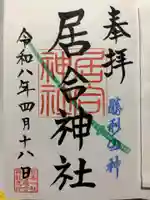 奉拝
勝利の神
居合神社
令和八年四月十八日